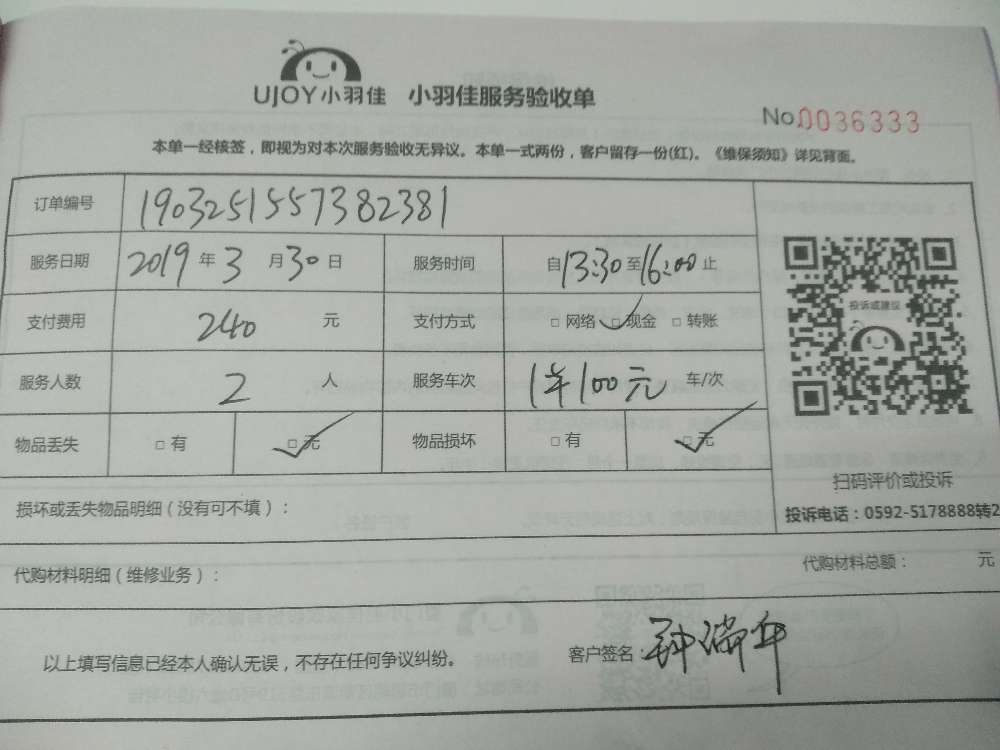 UJOY小羽佳 小羽佳服务验收单
No.0036333
本单一经核签，即视为对本次服务验收无异议。本单一式两份，客户留存一份(红)。《维保须知》详见背面。
订单编号 1903251557382381
服务日期 2019年3月30日 服务时间 自13:30至16:00止
投诉或建议
支付费用 240 元 支付方式 □网络 □现金 □转账
服务人数 2 人 服务车次 1车100元 车/次
物品丢失 □有 □无 物品损坏 □有 □无
扫码评价或投诉
损坏或丢失物品明细（没有可不填）：
投诉电话：0592-5178888转2
代购材料明细（维修业务）：
代购材料总额： 元
以上填写信息已经本人确认无误，不存在任何争议纠纷。 客户签名：钟瑞年